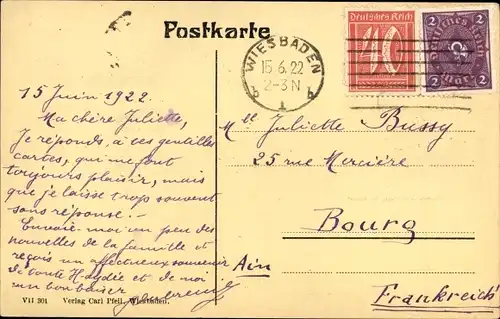 Postkarte
WIESBADEN
15.6.22
2-3N
b 1 b
Deutsches Reich
40
Deutsches Reich
2 2
2 Mark 2
15 Juin 1922.
Ma chère Juliette,
Je réponds, à tes gentilles
cartes, qui me font
toujours plaisir, mais
que je laisse trop souvent
sans réponse! -
Envoie-moi un peu des
nouvelles de la famille et
reçois un affectueux souvenir
de tante Haydée et de moi
un bon baiser
Mlle Juliette Bussy
25 rue Mercière
Bourg
Ain
Frankreich
VII 301 Verlag Carl Pfeil, Wiesbaden.